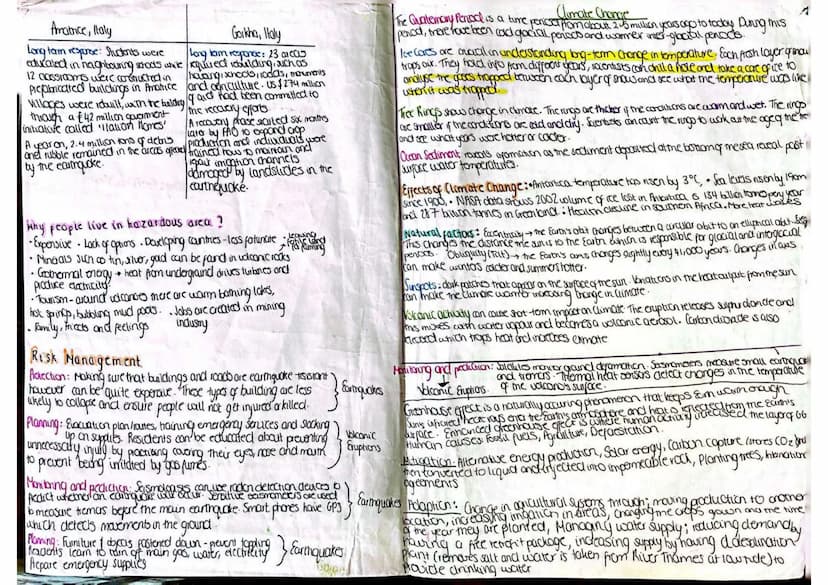 Amatrice, Italy
Long term response: Students were
educated in neighbouring schools while
12 classrooms were constructed in
prefabricated buildings in Amatrice
Villages were rebuilt, with the building
through a €42 million government
initiative called
A year on, 2.4 million tons of debris
and rubble remained in the areas affected
by the earthquake.
Gorkha, Italy
Long term response: 23 areas
required rebuilding, such as
housing, schools, roads, monuments
and agriculture. US $274 million
of aid had been committed to
the recovery efforts
A recovery phase started six months
later by FAO to expand crop
production and individuals were
trained how to maintain and
repair irrigation channels
damaged by landslides in the
earthquake.
Why people live in hazardous area?
• Expensive • Lack of options • Developing countries - less fortunate • Leaving fertile land for farming
• Minerals such as tin, silver, gold can be found in volcanic rocks
• Geothermal energy → heat from underground drives turbines and
produce electricity
• Tourism - around volcanoes there are warm bathing lakes,
hot springs, bubbling mud pools. • Jobs are created in mining
industry
• Family, friends and feelings
Risk Management
Protection: Making sure that buildings and roads are earthquake-resistant
however can be quite expensive. These types of building are less
likely to collapse and ensure people will not get injured or killed.
Earthquakes
Planning: Evacuation plan/routes, training emergency services and stocking
up on supplies. Residents can be educated about preventing
unnecessary injury by practising covering their eyes, nose and mouth
to prevent being irritated by gas fumes.
Volcanic
Eruptions
Monitoring and prediction: Seismologists can use radon detection devices to
predict whether an earthquake will occur. Sensitive seismometers are used
to measure tremors before the main earthquake. Smart phones have GPS
which detects movements in the ground.
Earthquakes
Planning: Furniture & objects fastened down - prevent toppling
Residents learn to turn off main gas, water, electricity
Prepare emergency supplies
Earthquakes
Climate Change
The Quaternary Period is a time period from about 2.6 million years ago to today. During this
period, there have been cold glacial periods and warmer inter-glacial periods.
Ice Cores are crucial in understanding long-term change in temperature. Each fresh layer of snow
traps air. They hold info from different years, scientists can drill a hole and take a core of ice to
analyse the gases trapped between each layer of snow and see what the temperature was like
when it was trapped.
Tree Rings shows change in climate. The rings are thicker if the conditions are warm and wet. The rings
are smaller if the conditions are cold and dry. Scientists can count the rings to work out the age of the tree
and see which years were hotter or cooler.
Ocean Sediment reveals information as the sediment deposited at the bottom of the sea reveal past
surface water temperatures.
Effects of Climate Change: • Antarctica temperature has risen by 3°C, • Sea levels risen by 19cm
since 1900. • NASA data shows 2002 volume of ice lost in Antarctica is 134 billion tonnes per year
and 287 billion tonnes in Greenland. • Heavier rainfall in southern Africa. More heat waves
Natural factors: Eccentricity → the Earth's orbit changes between a circular orbit to an elliptical orbit.
This changes the distance the sun is to the Earth which is responsible for glacial and interglacial
periods. Obliquity (tilt) → the Earth's axis changes slightly every 41,000 years. Changes in axis
can make winters colder and summers hotter.
Sunspots: dark patches that appear on the surface of the sun. Variations in the heat output from the sun
can make the climate warmer increasing change in climate.
Volcanic activity can cause short-term impact on climate. The eruption releases sulphur dioxide and
this mixes with water vapour and becomes a volcanic aerosol. Carbon dioxide is also
released which traps heat and increases climate
Monitoring and prediction: Satellites monitor ground deformation. Seismometers measure small earthquakes
and tremors. Thermal heat sensors detect changes in the temperature
of the volcano's surface.
Volcanic Eruptions
Greenhouse effect is a naturally occurring phenomenon that keeps Earth warm enough
Suns infrared heat rays enter the Earth's atmosphere and heat is reflected from the Earth's
surface. Enhanced Greenhouse effect is where human activity increased the layer of GG
Human causes: Fossil fuels, Agriculture, Deforestation.
Mitigation: Alternative energy production, Solar energy, Carbon capture (stores CO2 and
then converted to liquid and injected into impermeable rock, Planting trees, International
agreements
Adaption: Change in agricultural systems through; moving production to another
location, increasing irrigation in areas, changing the crops grown and the time
of the year they are planted, Managing water supply; reducing demand by
having a free retrofit package, increasing supply by having a desalination
plant (removes salt and water is taken from River Thames at low tide) to
provide drinking water